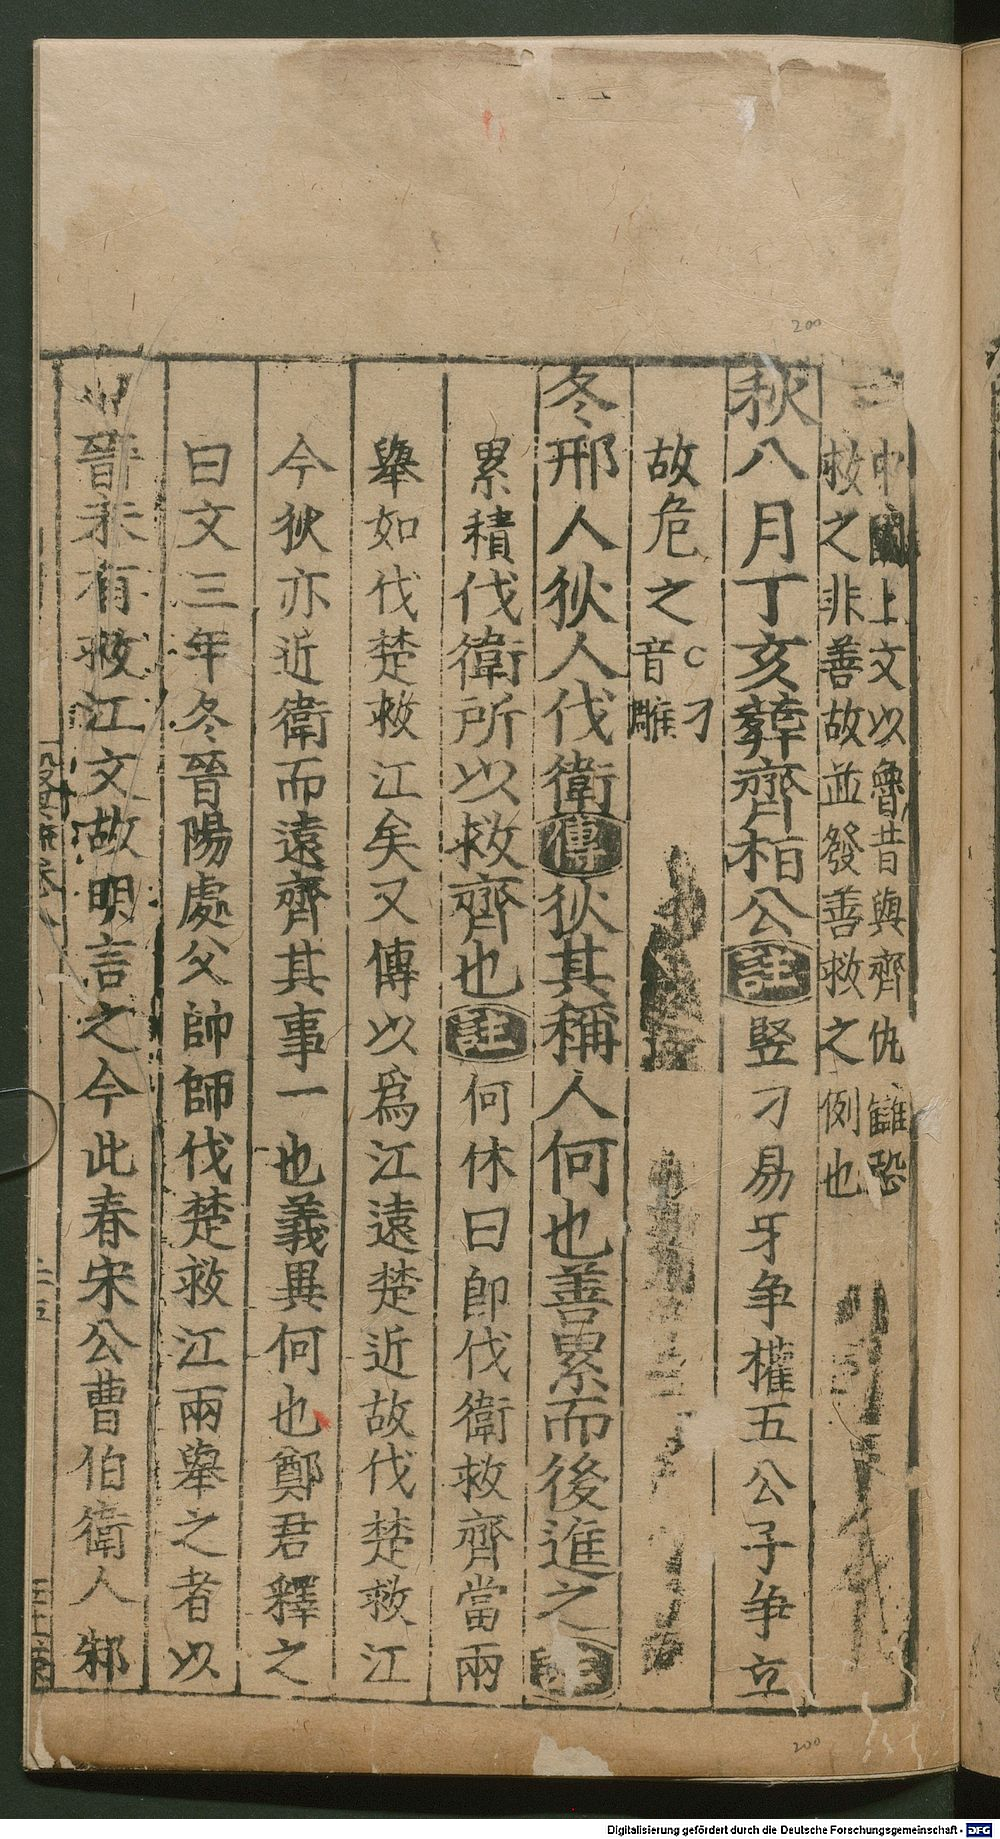 中國上文以魯昔與齊仇讎恐
救之非善故並發善救之例也
秋八月丁亥葬齊桓公註竪刁易牙争權五公子争立
故危之○刁
音雕
冬邢人狄人伐衛傳狄其稱人何也善累而後進之註
累積伐衛所以救齊也註何休曰即伐衛救齊當兩
舉如伐楚救江矣又傳以爲江遠楚近故伐楚救江
今狄亦近衛而遠齊其事一也義異何也鄭君釋之
曰文三年冬晉陽處父帥師伐楚救江兩舉之者以
晉未有救江文故明言之今此春宋公曹伯衛人邾
200
200
Digitalisierung gefördert durch die Deutsche Forschungsgemeinschaft - DFG